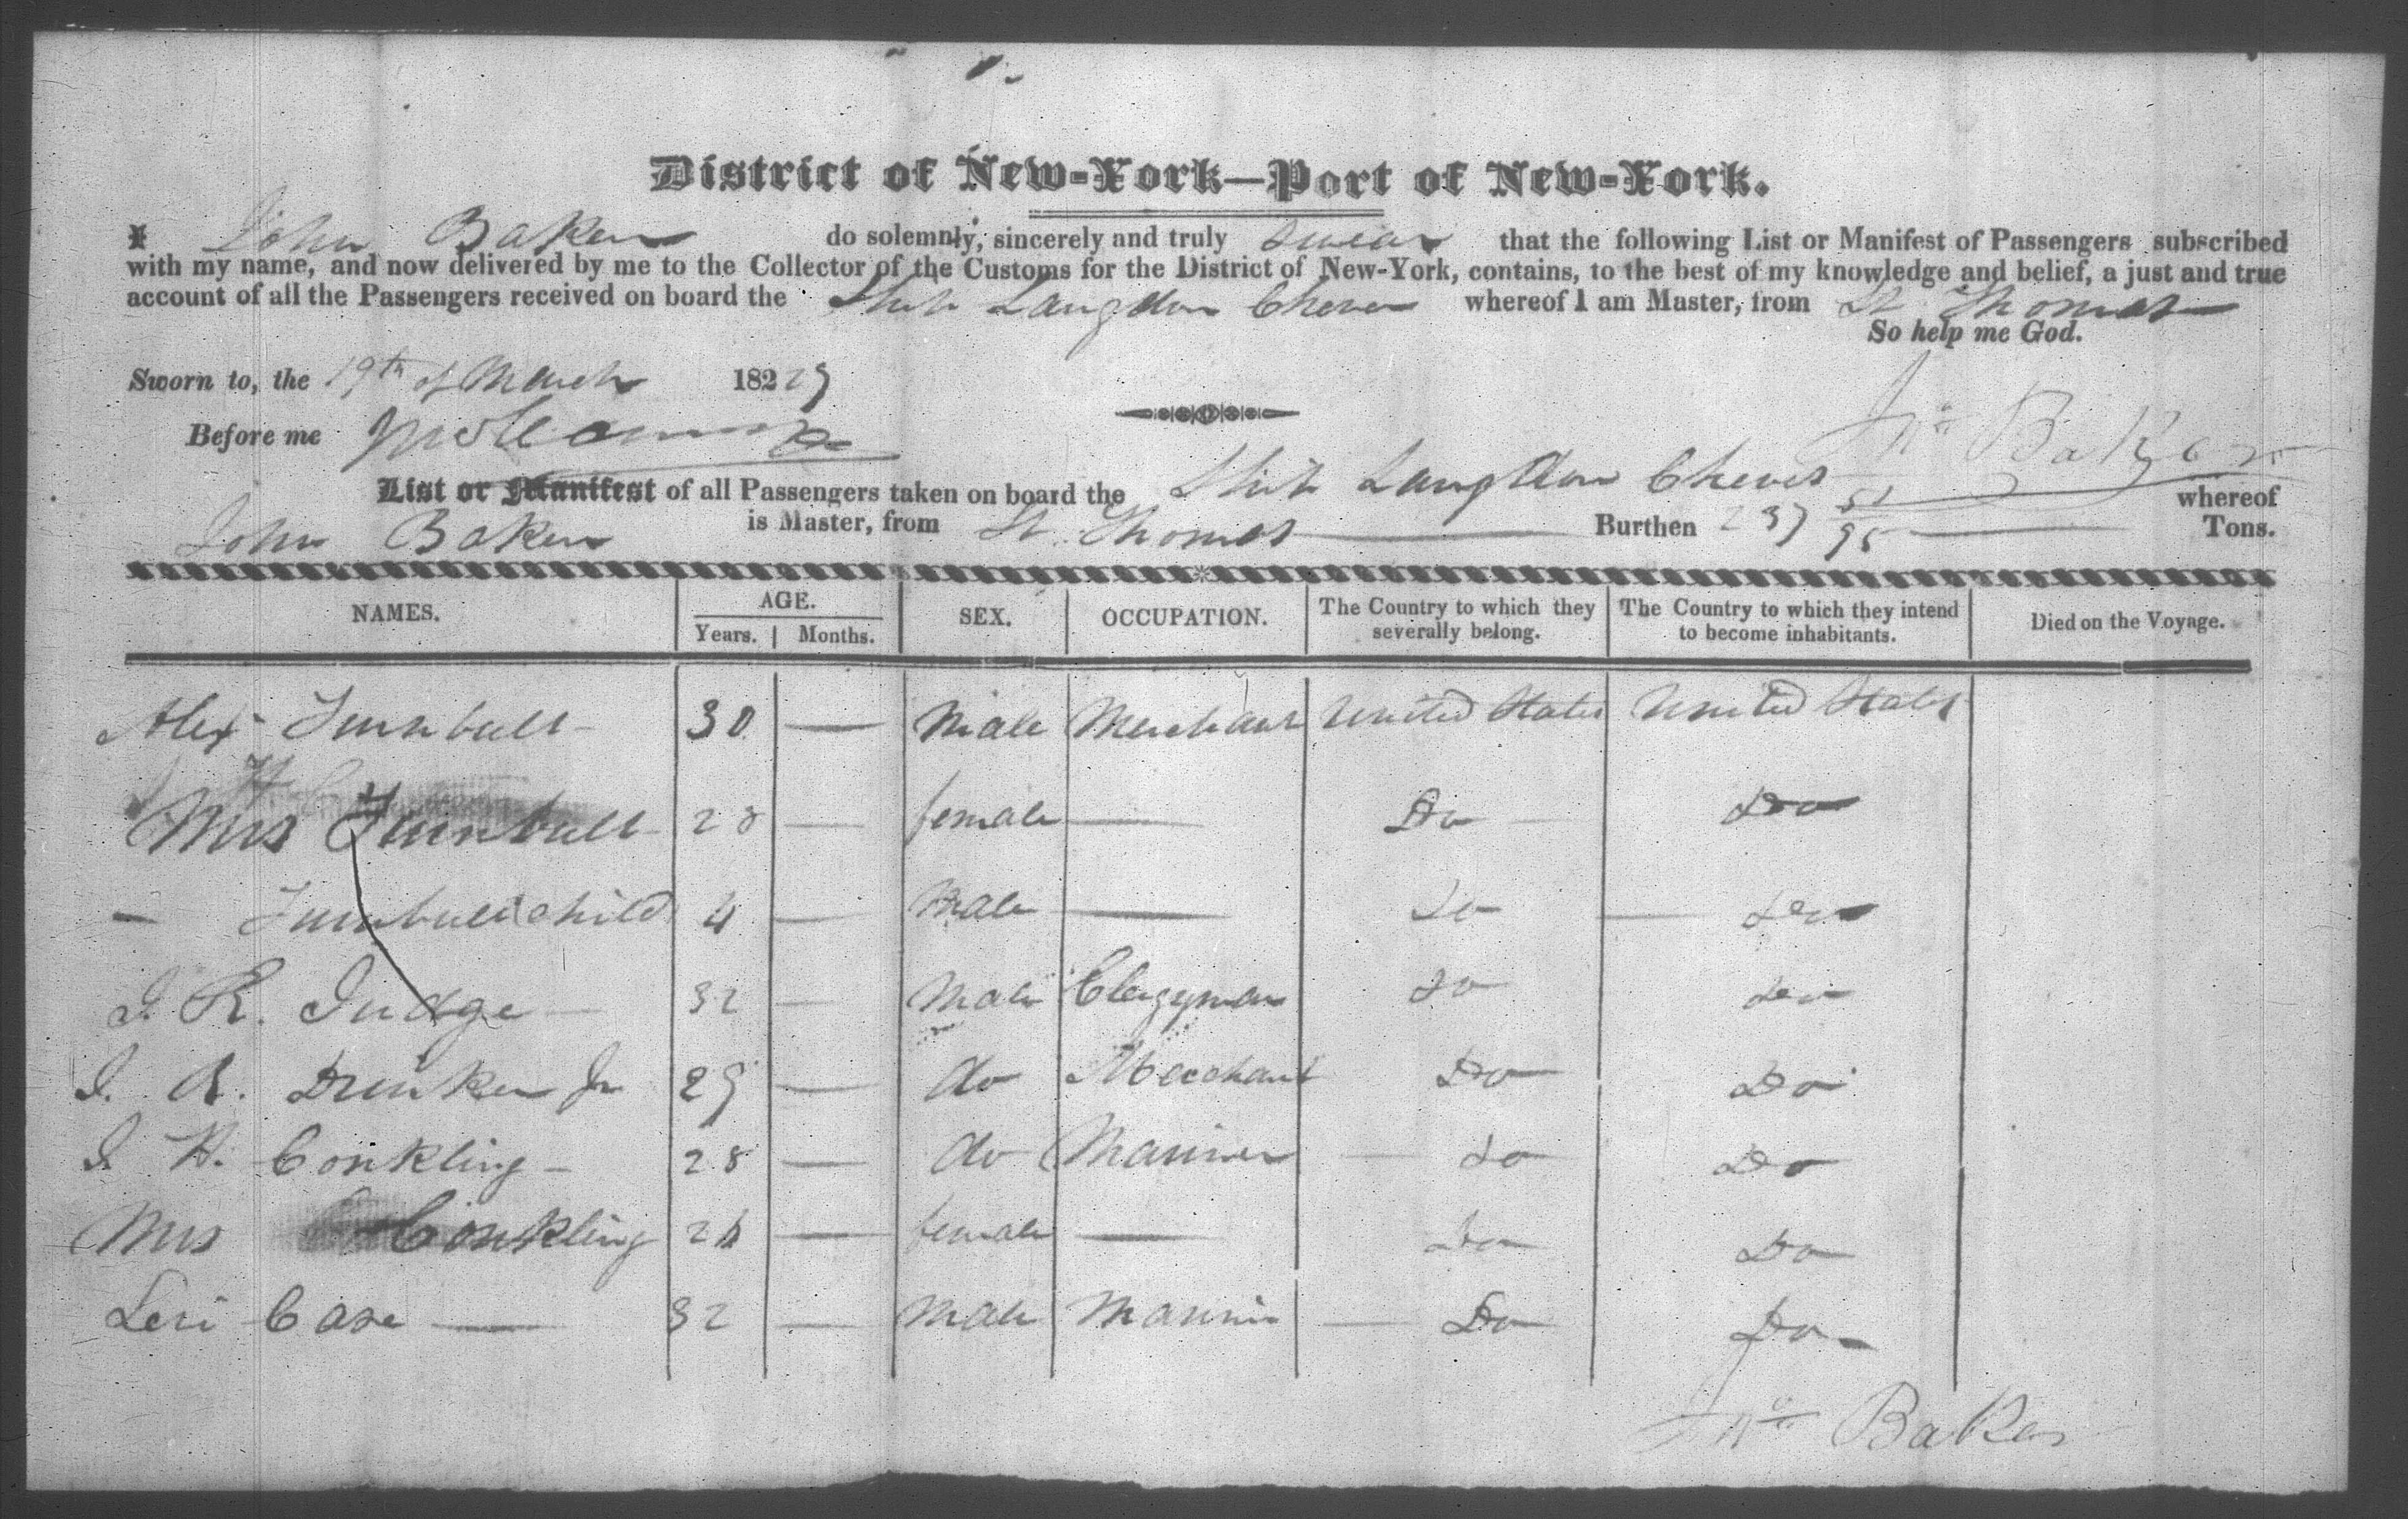 District of New-York—Port of New-York.
I John Baker do solemnly, sincerely and truly swear that the following List or Manifest of Passengers subscribed
with my name, and now delivered by me to the Collector of the Customs for the District of New-York, contains, to the best of my knowledge and belief, a just and true
account of all the Passengers received on board the Ship Langdon Cheves whereof I am Master, from St Thomas
So help me God.
Sworn to, the 19th of March 18229
Jno Baker
Before me
List or Manifest of all Passengers taken on board the Ship Langdon Cheves whereof
John Baker is Master, from St. Thomas Burthen 237 51/95 Tons.
NAMES. AGE. SEX. OCCUPATION. The Country to which they severally belong. The Country to which they intend to become inhabitants. Died on the Voyage.
Years. Months.
Alex Turnbull - 30 — Male Merchant United States United States
Mrs Turnbull - 28 — female — Do Do
— Turnbull child 4 — Male — Do Do
J. R. Judge 32 — Male Clergyman Do Do
J. R. Drinker Jr 29 — do Merchant Do Do
J H. Conkling - 28 — do Mariner — Do Do
Mrs Conkling 26 — female — Do Do
Levi Case — 32 — Male Marine — Do Do
Jno Baker